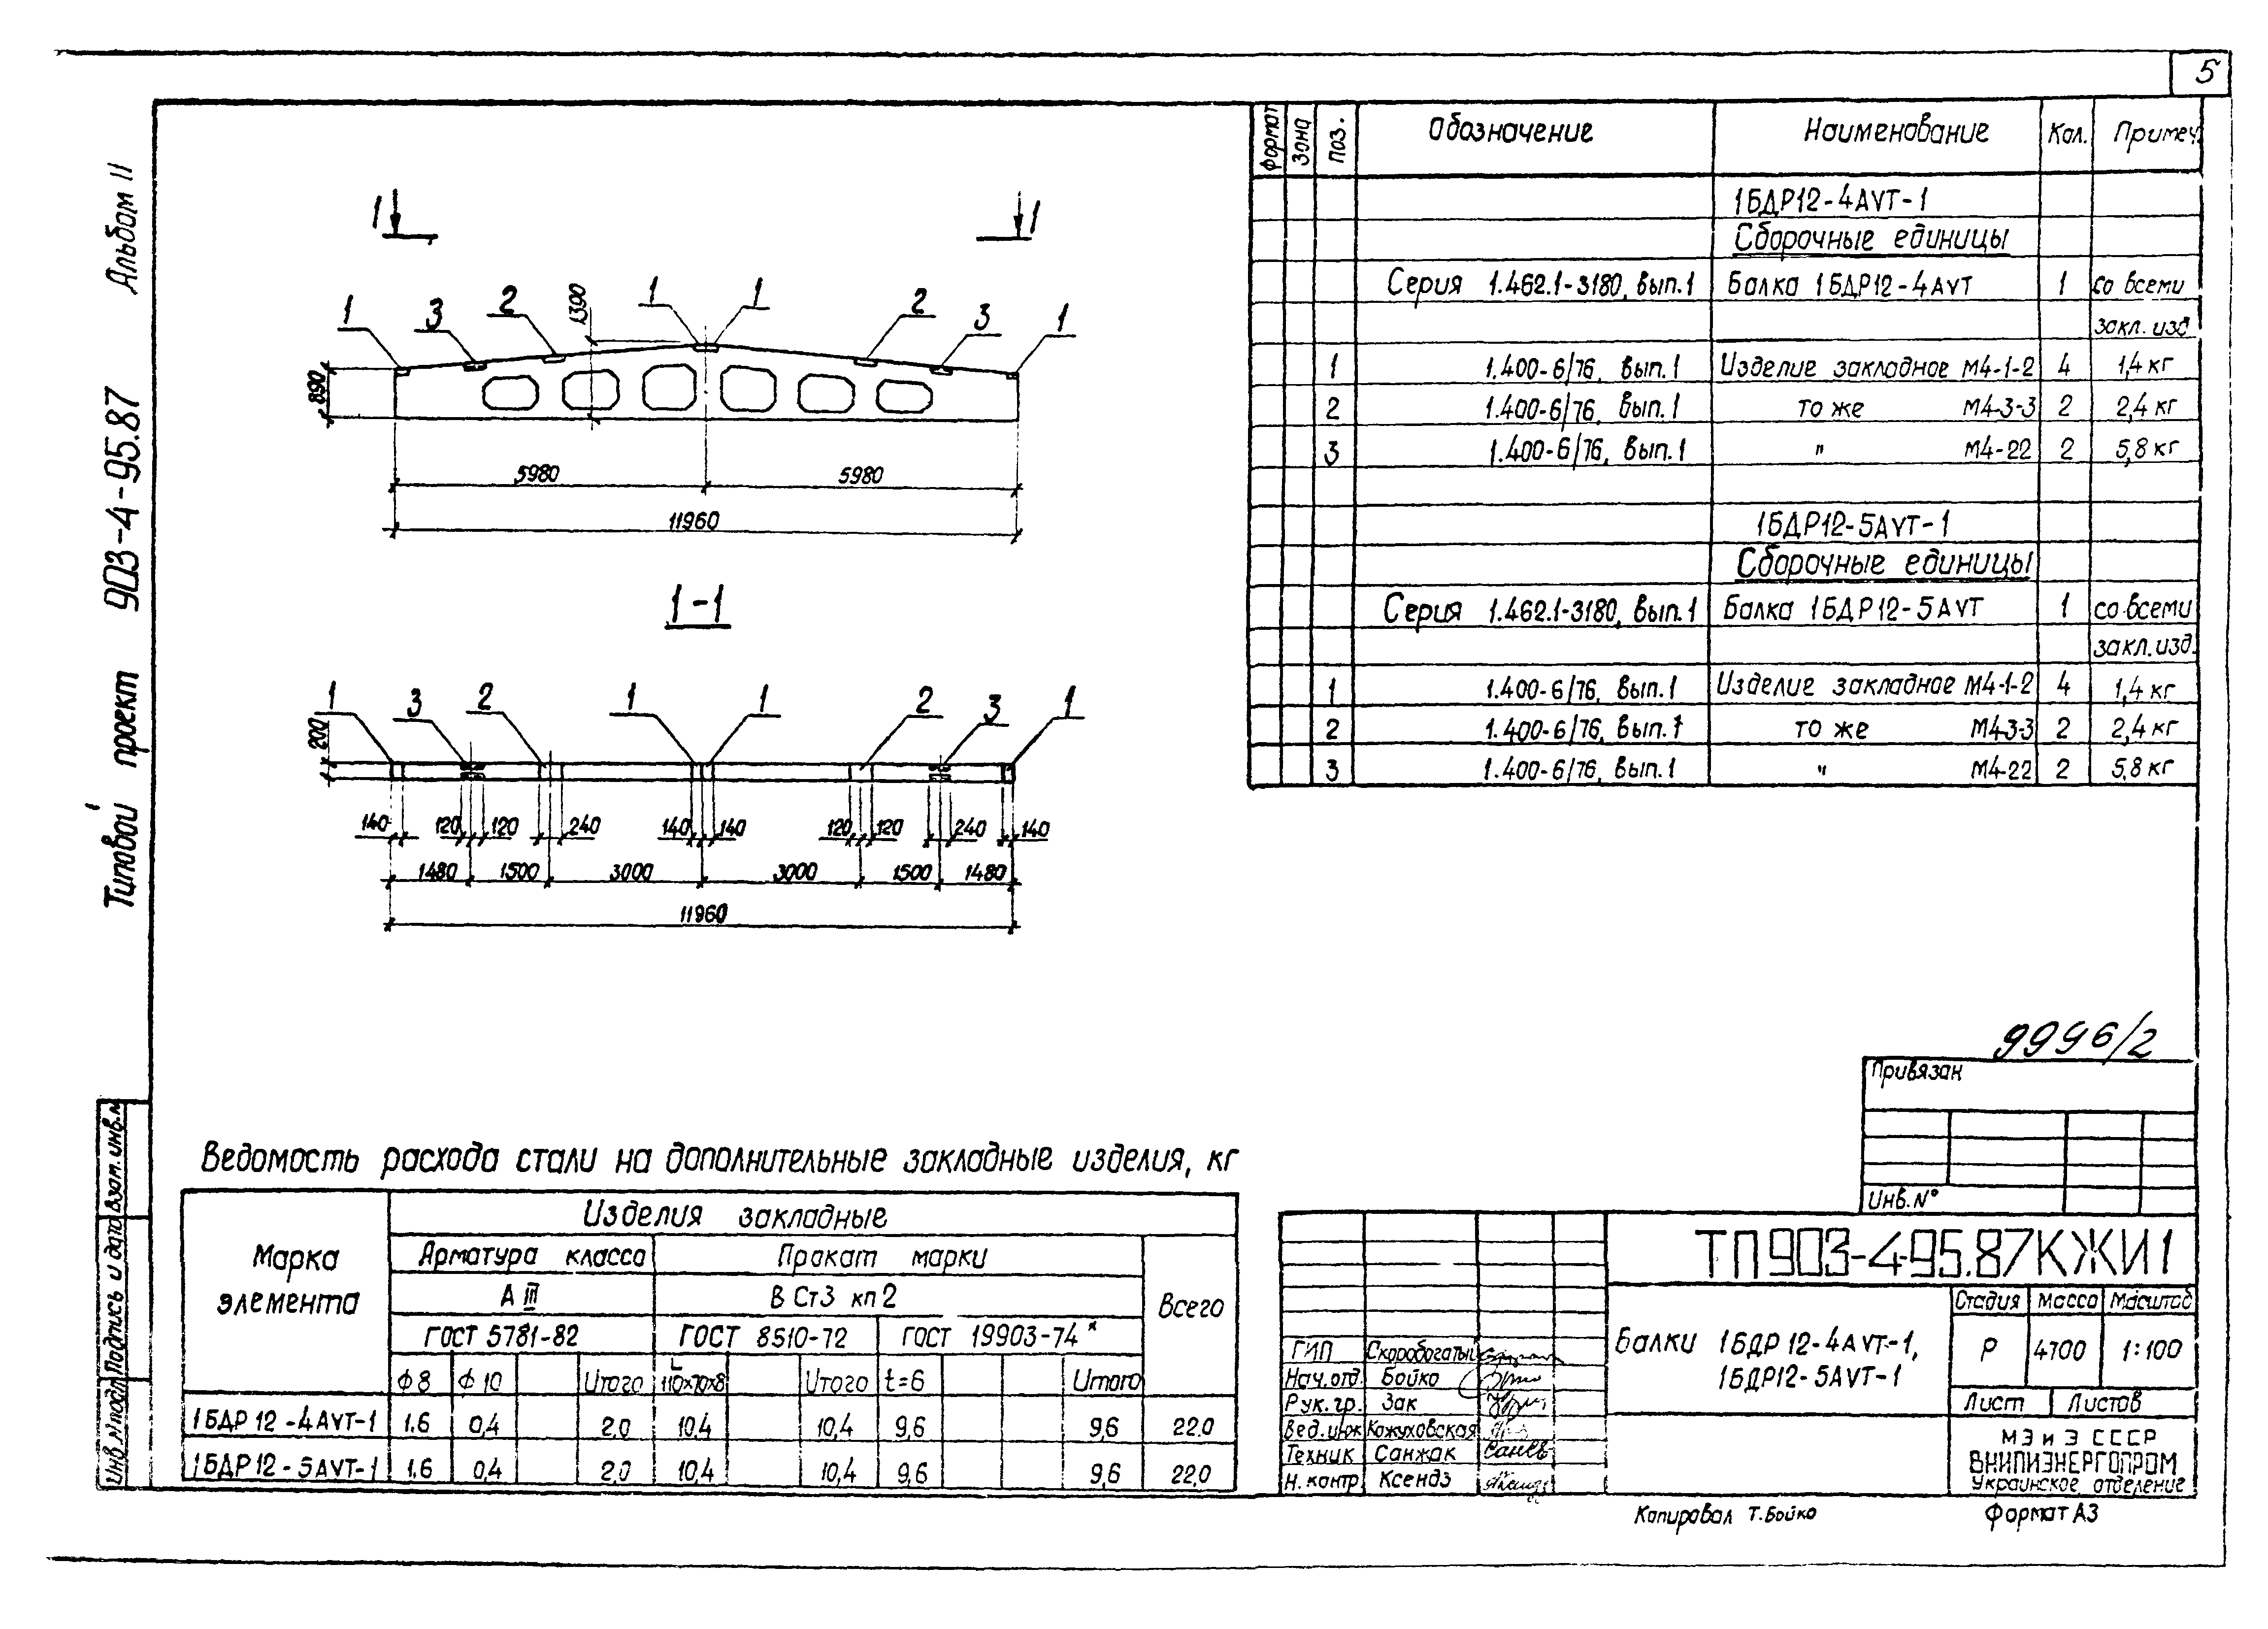 5
Типовой проект 903-4-95.87 Альбом II
1 1
1 3 2 1390 1 1 2 3 1
890
5980 5980
11960
1-1
1 3 2 1 1 2 3 1
200
140 120 120 240 140 140 120 120 240 140
1480 1500 3000 3000 1500 1480
11960
формат Зона Поз. Обозначение Наименование Кол. Примеч.
1БДР12-4АVТ-1
Сборочные единицы
Серия 1.462.1-3180, вып.1 Балка 1БДР12-4АVТ 1 со всеми
закл. изд.
1 1.400-6/76, вып.1 Изделие закладное М4-1-2 4 1,4 кг
2 1.400-6/76, вып.1 то же М4-3-3 2 2,4 кг
3 1.400-6/76, вып.1 " М4-22 2 5,8 кг
1БДР12-5АVТ-1
Сборочные единицы
Серия 1.462.1-3180, вып.1 Балка 1БДР12-5АVТ 1 со всеми
закл. изд.
1 1.400-6/76, вып.1 Изделие закладное М4-1-2 4 1,4 кг
2 1.400-6/76, вып.1 то же М4-3-3 2 2,4 кг
3 1.400-6/76, вып.1 " М4-22 2 5,8 кг
9996/2
Привязан
Инв. №
Ведомость расхода стали на дополнительные закладные изделия, кг
Марка элемента Изделия закладные
Арматура класса Прокат марки Всего
А III В Ст3 кп2
ГОСТ 5781-82 ГОСТ 8510-72 ГОСТ 19903-74*
ф8 ф10 Итого L 110х70х8 Итого t=6 Итого
1БДР12-4АVТ-1 1.6 0,4 2,0 10,4 10,4 9,6 9,6 22.0
1БДР12-5АVТ-1 1,6 0,4 2,0 10,4 10,4 9,6 9,6 22,0
Инв. № подл. Подпись и дата Взам. инв. №
ТП 903-4-95.87 КЖИ1
Балки 1БДР12-4АVТ-1,
1БДР12-5АVТ-1
Стадия Масса Масштаб
Р 4700 1:100
Лист Листов
МЭ и Э СССР
ВНИПИЭНЕРГОПРОМ
Украинское отделение
ГИП Скоробогатый
Нач. отд. Бойко
Рук. гр. Зак
Вед. инж. Кожуховская
Техник Санжак
Н. контр. Ксендз
Копировал Т. Бойко Формат А3